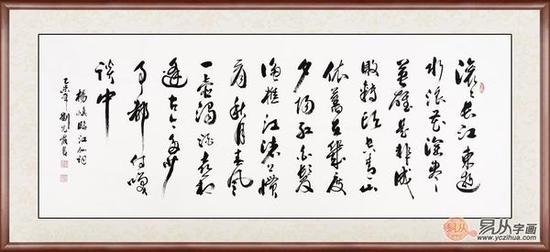 滚々长江东逝
水浪花淘尽
英雄是非成
败转头空青山
依旧在几度
夕阳红白发
渔樵江渚上惯
看秋月春风
一壶浊酒喜相
逢古今多少
事都付笑
谈中
杨慎临江仙词
乙未年 刘光霞书
易从字画
www.yczihua.com